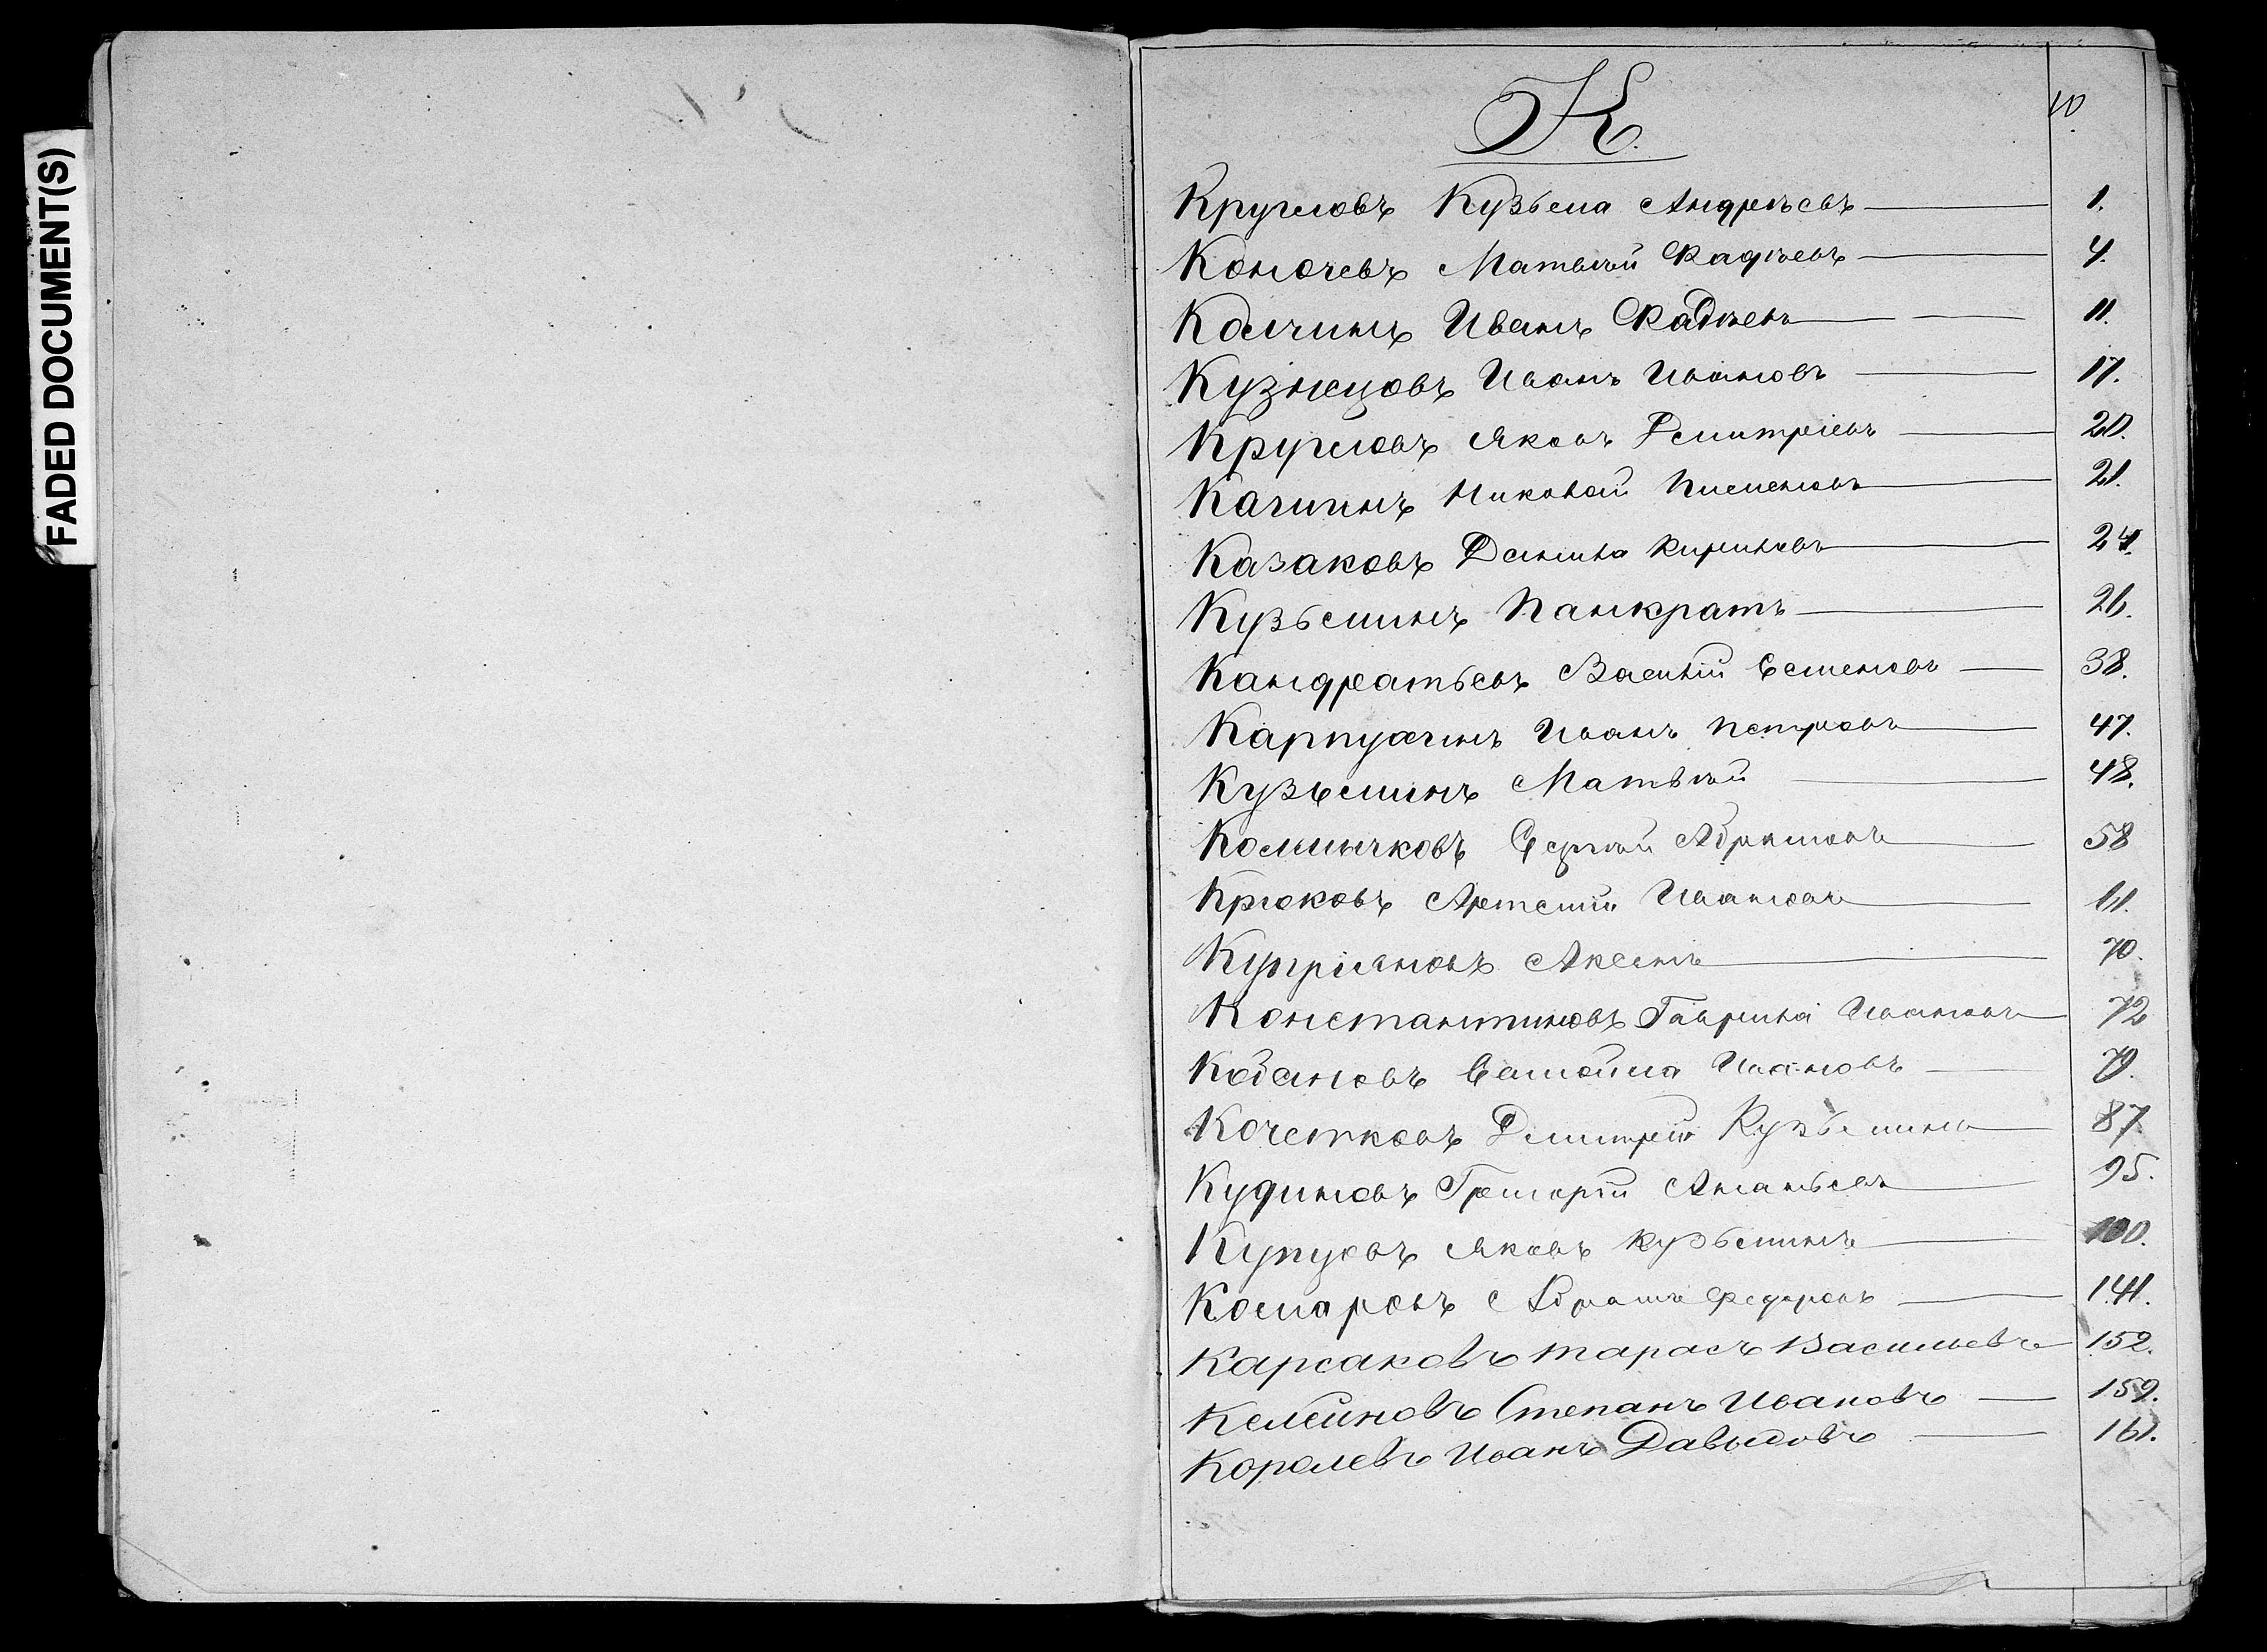 FADED DOCUMENT(S)
10
К.
Кругловъ Кузьма Андреѣевъ 1.
Конючевъ Матвѣй Фадѣевъ 4.
Колчинъ Иванъ Фадѣевъ 11.
Кузнецовъ Иванъ Ивановъ 17.
Кругловъ Яковъ Дмитріевъ 20.
Качигинъ Николай Пименовъ 21.
Казаковъ Данила Кириловъ 24.
Кузьминъ Панкратъ 26.
Кандратьевъ Василій Семеновъ 38.
Карпухинъ Иванъ Петровъ 47.
Кузьминъ Матвѣй 48.
Сергѣй Абрамовъ 58
Крюковъ Артемій Ивановъ 61.
Купріяновъ 70.
Константиновъ Гаврила Ивановъ 72
Кобановъ Самойла Ивановъ 79.
Кочетковъ Дмитрей Кузьминъ 87
Кудиновъ Григорій Ананьевъ 95.
Купцовъ Яковъ Кузьминъ 100.
Комаровъ Абрамъ Федоровъ 141.
Карсаковъ Тарасъ Васильевъ 152.
Келейновъ Степанъ Ивановъ 159.
Королевъ Иванъ Давыдовъ 161.